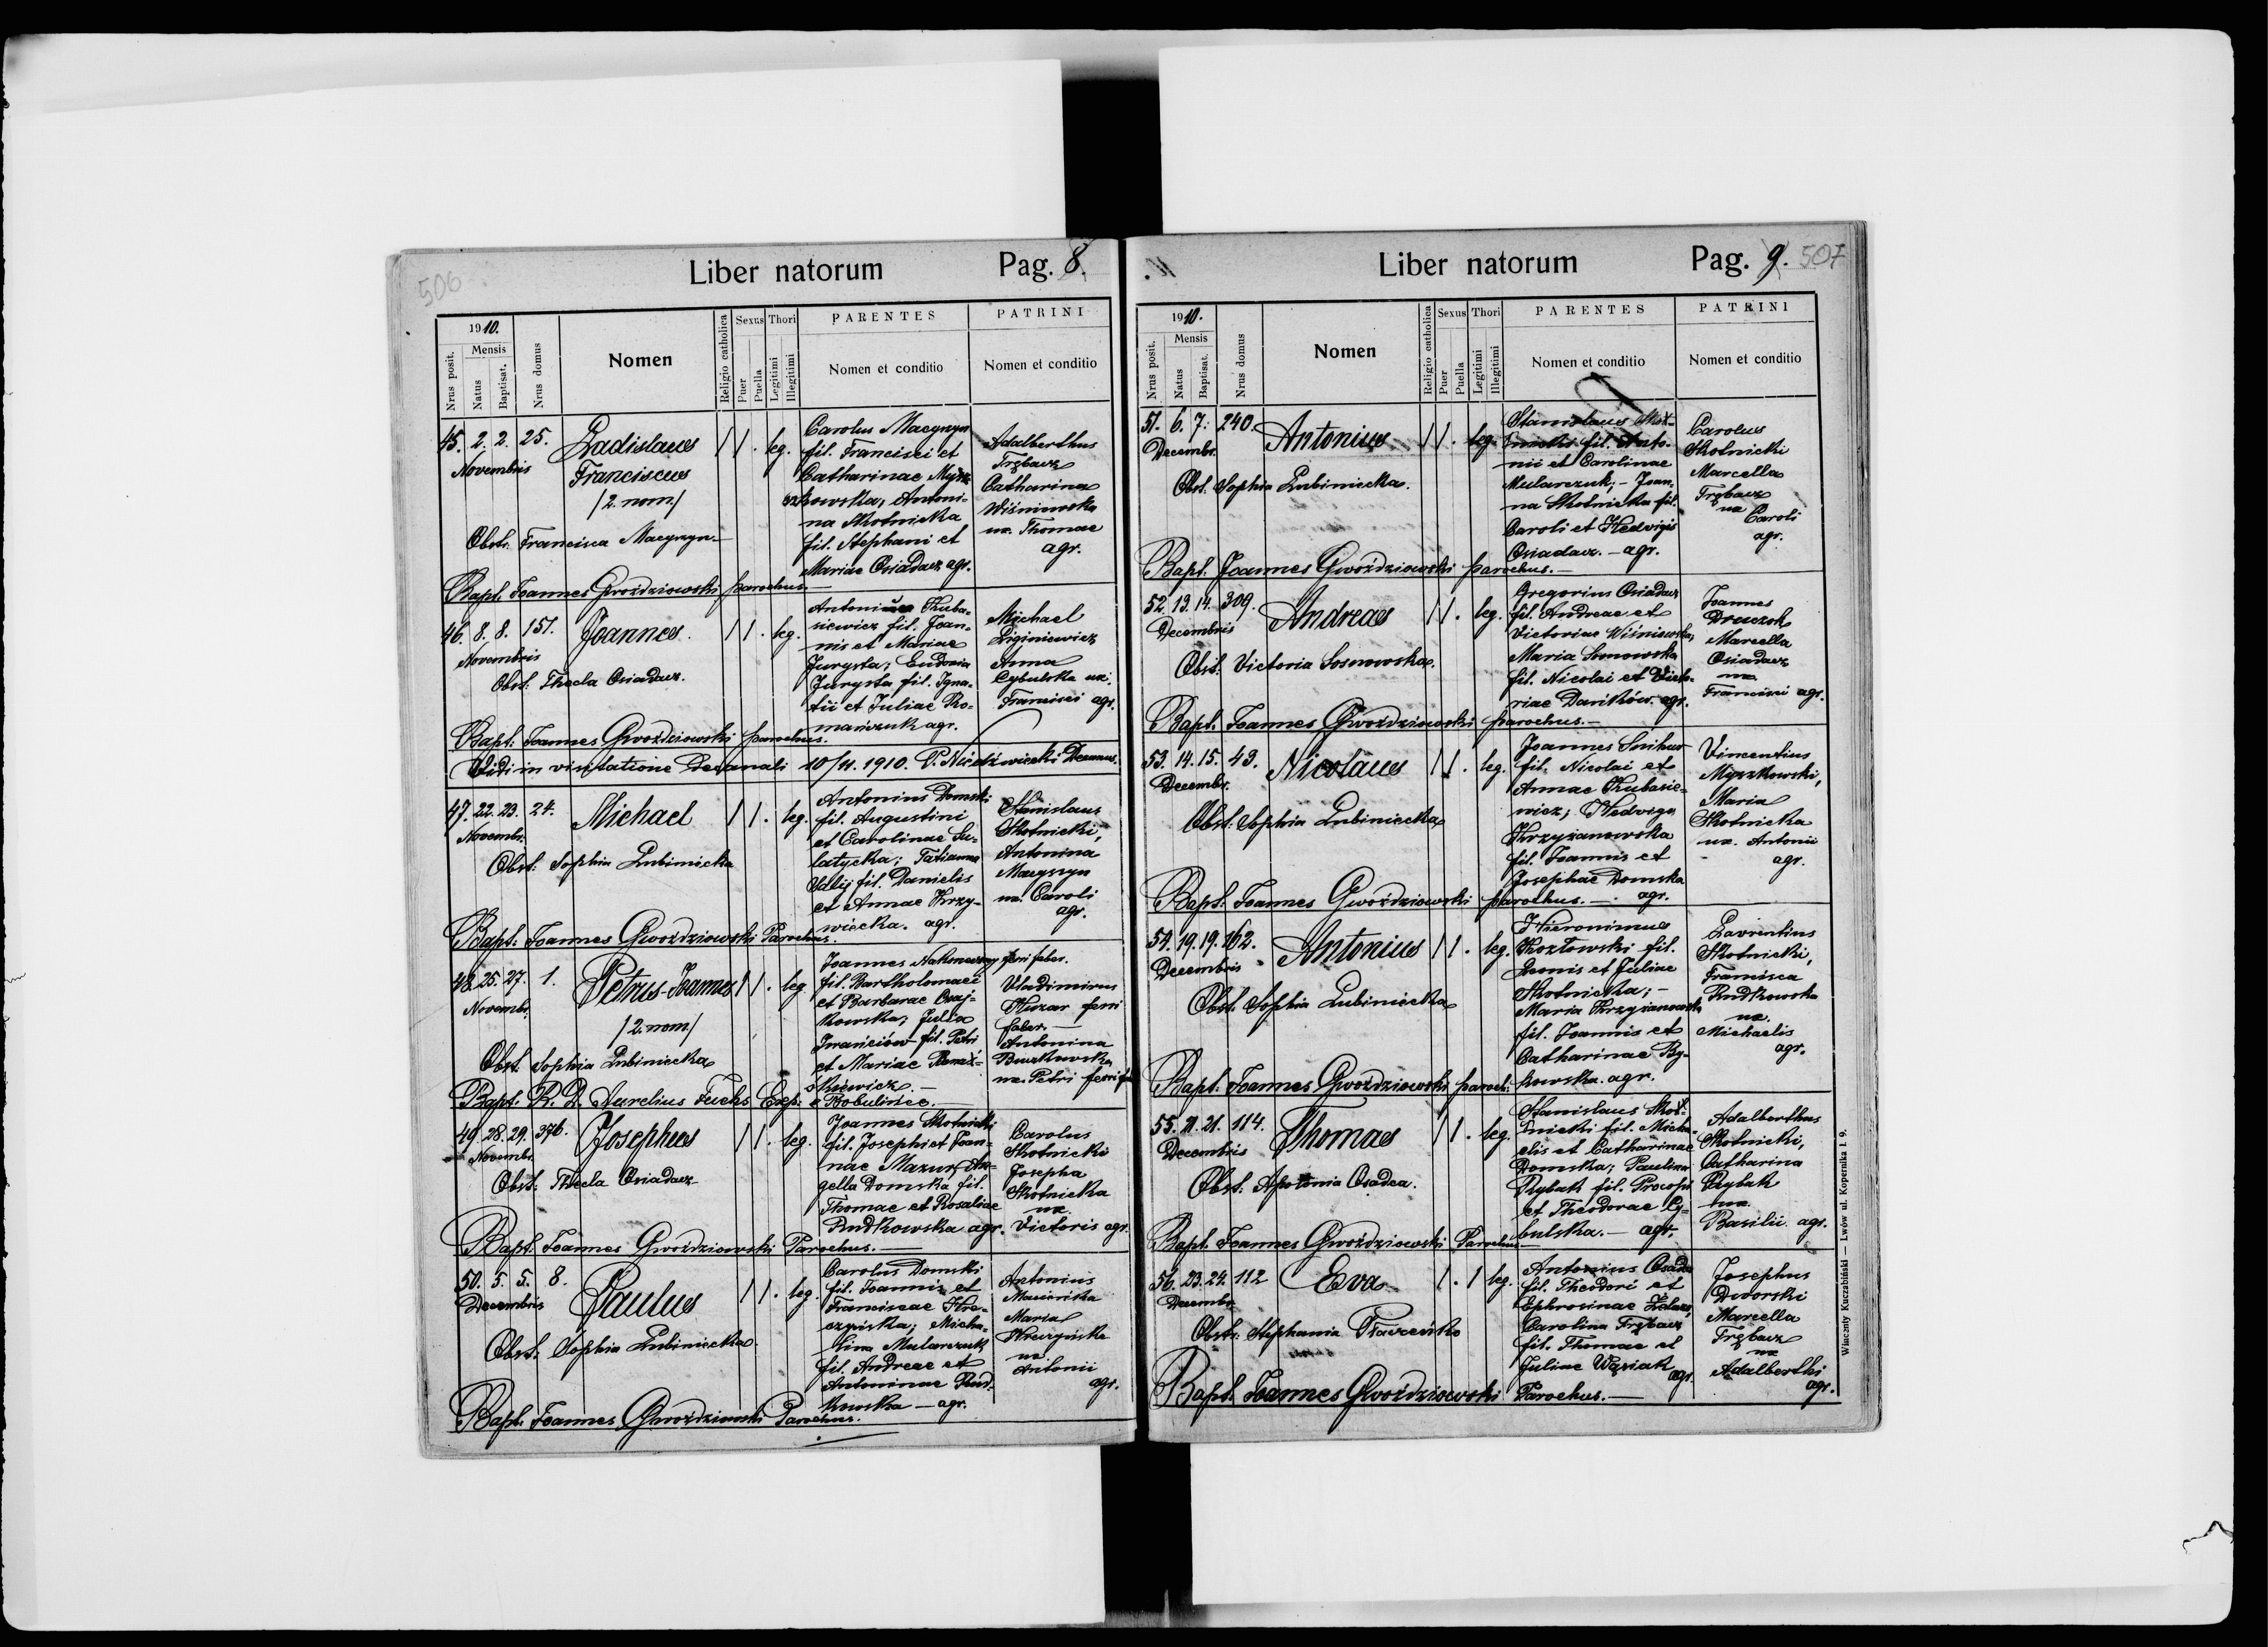 506
Liber natorum
Pag. 8.
1910.
Nrus posit.
Mensis
Natus
Baptisat.
Nrus domus
Nomen
Religio catholica
Sexus
Puer
Puella
Thori
Legitimi
Illegitimi
PARENTES
Nomen et conditio
PATRINI
Nomen et conditio
45. 2. 2. 25.
Novembris
Ladislaus
Franciscus
/2. nom/
leg.
Carolus Macyszyn
fil. Francisci et
Catharinae Mysz-
kowska, Antoni-
na Skotnicka
fil. Stephani et
Mariae Osiadacz agr.
Adalberthus
Trębacz
Catharina
Wiśniowska
ux. Thomae
agr.
Obstr. Francisca Macyszyn
Bapt. Joannes Gwoździowski parochus.
46. 8. 8. 151.
Novembris
Joannes.
leg.
Antonius Kuba-
siewicz fil. Joan-
nis et Mariae
Jurysta; Eudoxia
Jurysta fil. Igna-
tii et Juliae Ro-
mańczuk agr.
Michael
Liginiewicz
Anna
Cybulska ux.
Francisci agr.
Obst: Thecla Osiadacz.
Bapt: Joannes Gwoździowski parochus.
Vidi in visitatione decanali 10/11. 1910. P. Niedźwiecki Decanus.
47. 22. 23. 24.
Novembr.
Michael
leg.
Antonius Domski
fil. Augustini
et Carolinae Su-
latycka; Tatianna
fil. Danielis
et Annae Krzy-
wiecka. agr.
Stanislaus
Skotnicki,
Antonina
Macyszyn
ux. Caroli
agr.
Obst: Sophia Lubiniecka
Bapt: Joannes Gwoździowski Parochus.
48. 25. 27. 1.
Novembr.
Petrus-Joannes
/2. nom/
leg.
Joannes Nakoneczny ferri faber.
fil. Bartholomaei
et Barbarae Czaj-
kowska; Julia
Iwanciów fil. Petri
et Mariae
Vladimirus
Huzar ferri
faber. —
Antonina
Buczkowska
ux. Petri ferri fa
Obst. Sophia Lubiniecka
Bapt. R. D. Aurelius Fuchs Exp: e Bobulińce.
49. 28. 29. 376.
Novembr.
Josephus
leg.
Joannes Skotnicki
fil. Josephi et Joan-
nae Mazur; An-
gella Domska fil.
Thomae et Rosaliae
Rudkowska agr.
Carolus
Skotnicki
Josepha
Skotnicka
ux.
Victoris agr.
Obst: Thecla Osiadacz
Bapt. Joannes Gwoździowski Parochus. —
50. 5. 5. 8.
Decembris
Paulus
leg.
Carolus Domski
fil. Joannis et
Franciscae Kre-
czyńska; Micha-
lina Mularczuk
fil. Andreae et
Antoninae Rud-
kowska — agr.
Antonius
Maria
Kreczyńska
ux
Antonii
agr.
Obst: Sophia Lubiniecka
Bapt. Joannes Gwoździowski Parochus.
Liber natorum
Pag. 9. 507
1910.
Nrus posit.
Mensis
Natus
Baptisat.
Nrus domus
Nomen
Religio catholica
Sexus
Puer
Puella
Thori
Legitimi
Illegitimi
PARENTES
Nomen et conditio
PATRINI
Nomen et conditio
51. 6. 7. 240.
Decembr.
Antonius
leg.
Stanislaus Skot-
nicki fil. Anto-
nii et Carolinae
Mularczuk; — Joan-
na Skotnicka fil.
Caroli et Hedvigis
Osiadacz. — agr.
Carolus
Skotnicki
Marcella
Trębacz
ux
Caroli
agr.
Obst. Sophia Lubiniecka.
Bapt. Joannes Gwoździowski parochus. —
52. 13. 14. 309.
Decembris
Andreas
leg.
Gregorius Osiadacz
fil. Andreae et
Victoriae Wiśniowska,
Maria Sosnowska
fil. Nicolai et Victo-
riae Dańków. agr.
Joannes
Marcella
Osiadacz
ux.
Francisci agr.
Obst: Victoria Sosnowska.
Bapt. Joannes Gwoździowski parochus. —
53. 14. 15. 43.
Decembr.
Nicolaus
leg.
Joannes Snihur
fil. Nicolai et
Annae Kubasie-
wicz; Hedwiga
Krzyżanowska
fil. Joannis et
Josephae Domska
agr.
Vincentius
Myszkowski,
Maria
Skotnicka
ux. Antonii
agr.
Obst: Sophia Lubiniecka
Bapt. Joannes Gwoździowski parochus. —
54. 19. 19. 162.
Decembris
Antonius
leg.
Hieronimus
Kozłowski fil.
Leonis et Juliae
Skotnicka; —
Maria Krzyżanowska
fil. Joannis et
Catharinae By-
kowska. agr.
Lavrentius
Skotnicki,
Francisca
Rudkowska
ux.
Michaelis
agr.
Obst. Sophia Lubiniecka
Bapt. Joannes Gwoździowski paroch:
55. 21. 21. 114.
Decembris
Thomas
leg.
Stanislaus Skot-
nicki fil. Micha-
elis et Catharinae
Domska; Paulina
Rybak fil. Procopi
et Theodorae Cy-
bulska. — agr.
Adalberthus
Skotnicki,
Catharina
Rybak
ux.
Basilii. agr.
Obst: Apolonia Osadca.
Bapt. Joannes Gwoździowski Parochus
56. 23. 24. 112
Decembr.
Eva
leg.
Antonius Osadca
fil. Theodori et
Ephrosinae
Carolina Trębacz
fil. Thomae et
Juliae Węziak
agr.
Josephus
Dworski
Marcella
Trębacz
ux
Adalberthi
agr.
Obstr: Stephania
Bapt. Joannes Gwoździowski Parochus. —
Wincenty Kuczabiński — Lwów ul. Kopernika l. 9.